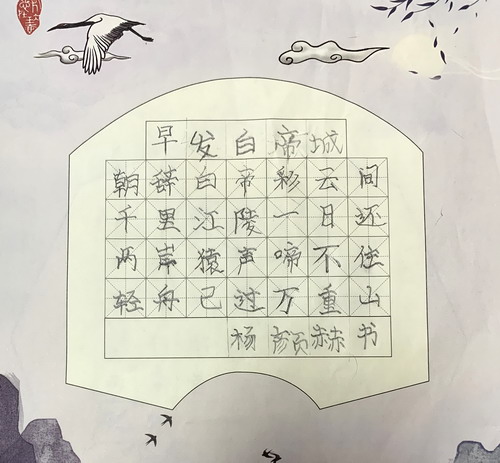 早发白帝城
朝辞白帝彩云间
千里江陵一日还
两岸猿声啼不住
轻舟已过万重山
杨彦页赫书